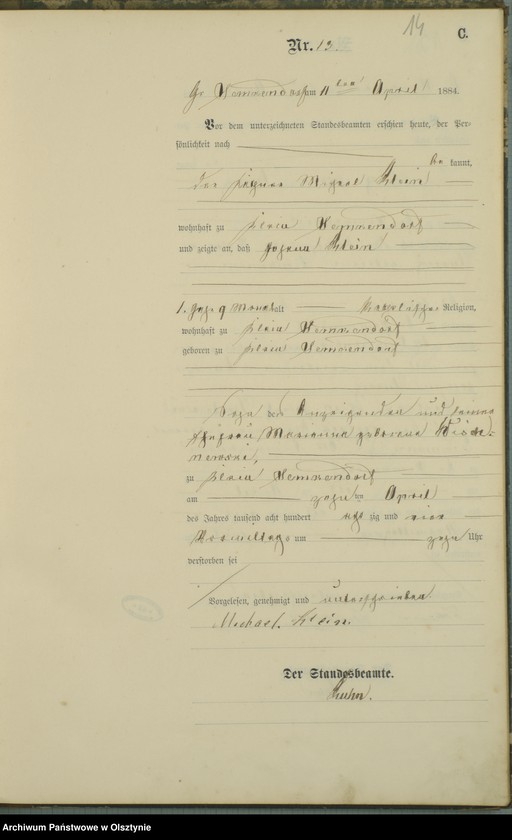 14
C.
Nr. 13.
Gr. am 11 ten April 1884.
Vor dem unterzeichneten Standesbeamten erschien heute, der Per-
sönlichkeit nach
be kannt,
der Michael Klein
wohnhaft zu Klein
und zeigte an, daß Johann Klein
1. Jahr 9 Monat alt katolischer Religion,
wohnhaft zu Klein
geboren zu Klein
Sohn des Anzeigenden und seiner
Ehefrau Marianna geborene
zu Klein
am zehn ten April
des Jahres tausend acht hundert acht zig und vier
Vormittags um zehn Uhr
verstorben sei
Vorgelesen, genehmigt und unterschrieben
Michael Klein.
Der Standesbeamte.
Kuhn.
Archiwum Państwowe w Olsztynie